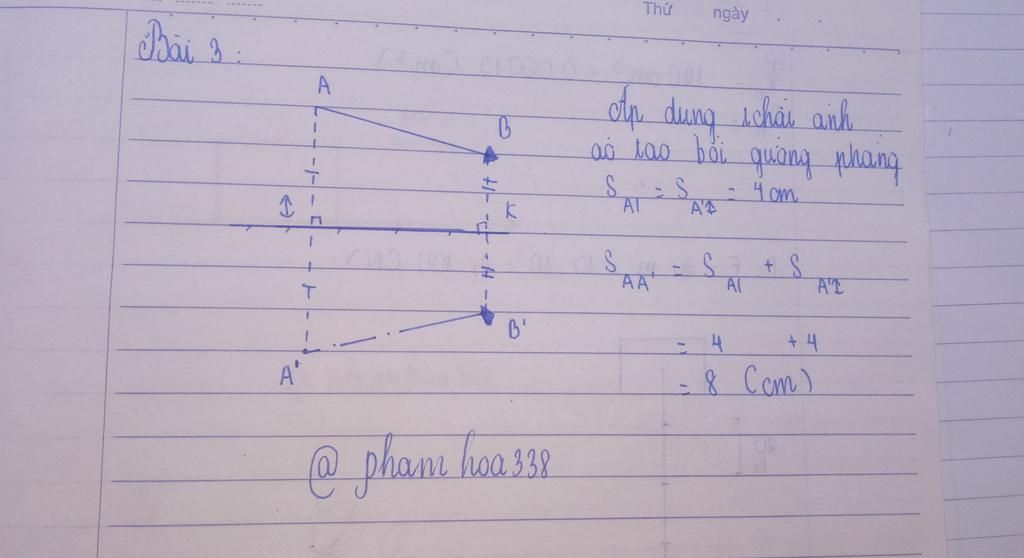 Thứ ngày
Bài 3 :
A
B
I
K
A'
B'
Áp dụng t/chất ảnh
ảo tạo bởi gương phẳng
S AI = S A'I = 4 cm
S AA' = S AI + S A'I
= 4 + 4
= 8 (cm)
@ phamhoa338